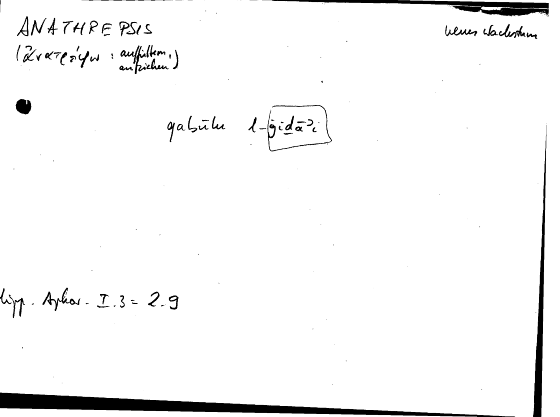 ANATHREPSIS
neues Wachstum
(ἀνατρέφω : auffüttern,
aufziehen)
qabūlu l-ġiḏāʾi
Hipp. Aphor. I.3 = 2.9